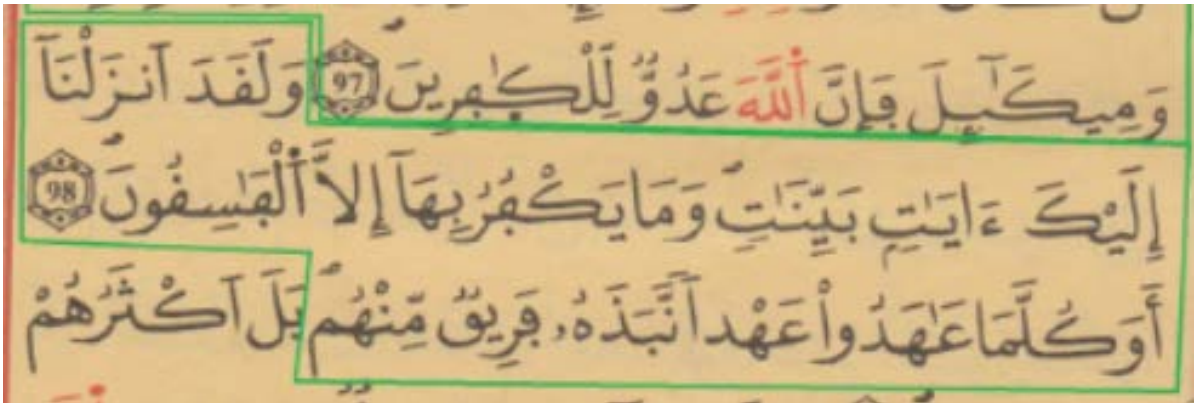 وَمِيكَـٰٓئِلَ فَإِنَّ اَ۬للَّهَ عَدُوٌّ لِّلْكٰ۪فِرِينَۖ 97 وَلَقَدَ اَنزَلْنَآ
إِلَيْكَ ءَايَٰتِۢ بَيِّنَٰتٖۖ وَمَا يَكْفُرُ بِهَآ إِلَّا اَ۬لْفَٰسِقُونَۖ 98
أَوَكُلَّمَا عَٰهَدُواْ عَهْداٗ نَّبَذَهُۥ فَرِيقٞ مِّنْهُمۖ بَلَ اَكْثَرُهُمْ